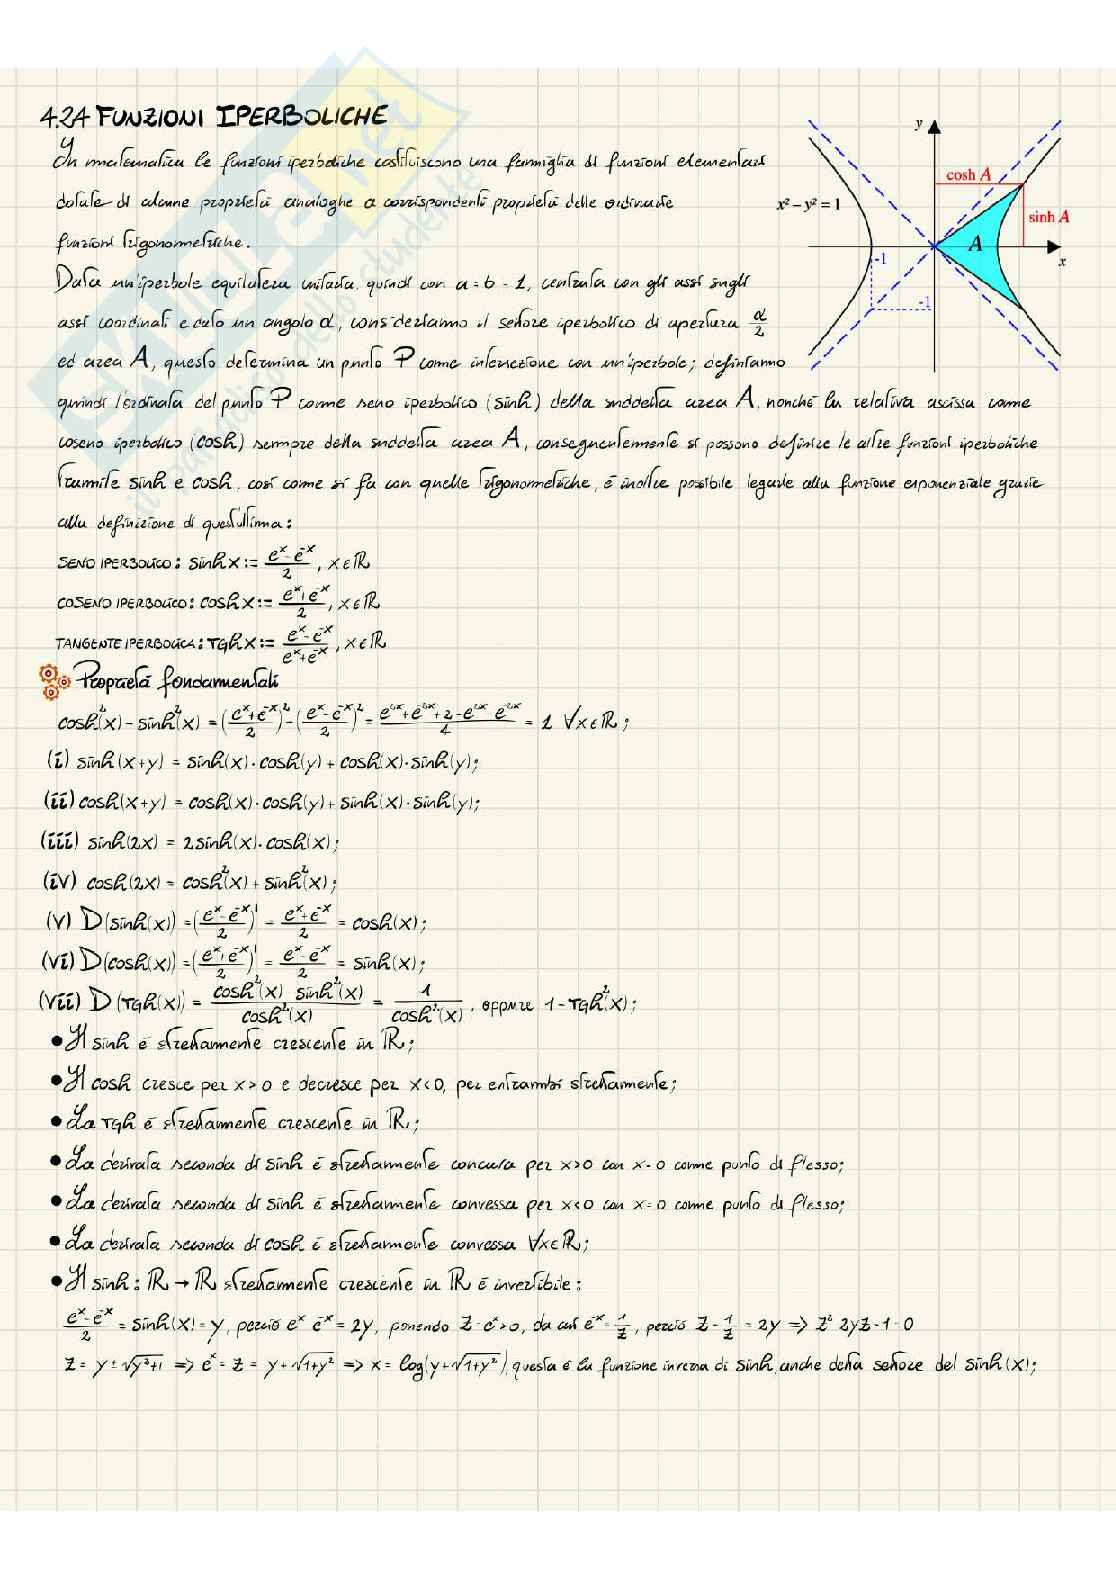 4.24 FUNZIONI IPERBOLICHE
In matematica le funzioni iperboliche costituiscono una famiglia di funzioni elementari
dotate di alcune proprietà analoghe a corrispondenti proprietà delle ordinarie
funzioni trigonometriche.
Data un'iperbole equilatera unitaria, quindi con a = b = 1, centrata con gli assi sugli
assi coordinati e dato un angolo α, consideriamo il settore iperbolico di apertura α/2
ed area A, questo determina un punto P come intersezione con un'iperbole; definiamo
quindi l'ordinata del punto P come seno iperbolico (sinh) della suddetta area A, nonché la relativa ascissa come
coseno iperbolico (cosh) sempre della suddetta area A, conseguentemente si possono definire le altre funzioni iperboliche
tramite sinh e cosh, così come si fa con quelle trigonometriche, è inoltre possibile legarle alla funzione esponenziale grazie
alla definizione di quest'ultima:
SENO IPERBOLICO: sinh x := (e^x - e^-x)/2, x∈ℝ
COSENO IPERBOLICO: cosh x := (e^x + e^-x)/2, x∈ℝ
TANGENTE IPERBOLICA: TGh x := (e^x - e^-x)/(e^x + e^-x), x∈ℝ
Proprietà fondamentali
cosh²(x) - sinh²(x) = ((e^x + e^-x)/2)² - ((e^x - e^-x)/2)² = (e^2x + e^-2x + 2 - e^2x e^-2x)/4 = 1 ∀x∈ℝ;
(i) sinh(x+y) = sinh(x)·cosh(y) + cosh(x)·sinh(y);
(ii) cosh(x+y) = cosh(x)·cosh(y) + sinh(x)·sinh(y);
(iii) sinh(2x) = 2sinh(x)·cosh(x);
(iv) cosh(2x) = cosh²(x) + sinh²(x);
(v) D(sinh(x)) = ((e^x - e^-x)/2)' = (e^x + e^-x)/2 = cosh(x);
(vi) D(cosh(x)) = ((e^x + e^-x)/2)' = (e^x - e^-x)/2 = sinh(x);
(vii) D(TGh(x)) = (cosh²(x) sinh²(x))/cosh²(x) = 1/cosh²(x), oppure 1 - TGh²(x);
• Il sinh è strettamente crescente in ℝ;
• Il cosh cresce per x>0 e decresce per x<0, per entrambi strettamente;
• La TGh è strettamente crescente in ℝ;
• La derivata seconda di sinh è strettamente concava per x>0 con x=0 come punto di flesso;
• La derivata seconda di sinh è strettamente convessa per x<0 con x=0 come punto di flesso;
• La derivata seconda di cosh è strettamente convessa ∀x∈ℝ;
• Il sinh: ℝ → ℝ strettamente crescente in ℝ è invertibile:
(e^x - e^-x)/2 = sinh(x) = y, perciò e^x e^-x = 2y, ponendo z = e^x > 0, da cui e^-x = 1/z, perciò z - 1/z = 2y => z² 2yz - 1 = 0
z = y ± √(y²+1) => e^x = z = y + √(1+y²) => x = log(y + √(1+y²)), questa è la funzione inversa di sinh, anche detta settore del sinh(x);
y
cosh A
x² – y² = 1
sinh A
A
x
-1
-1